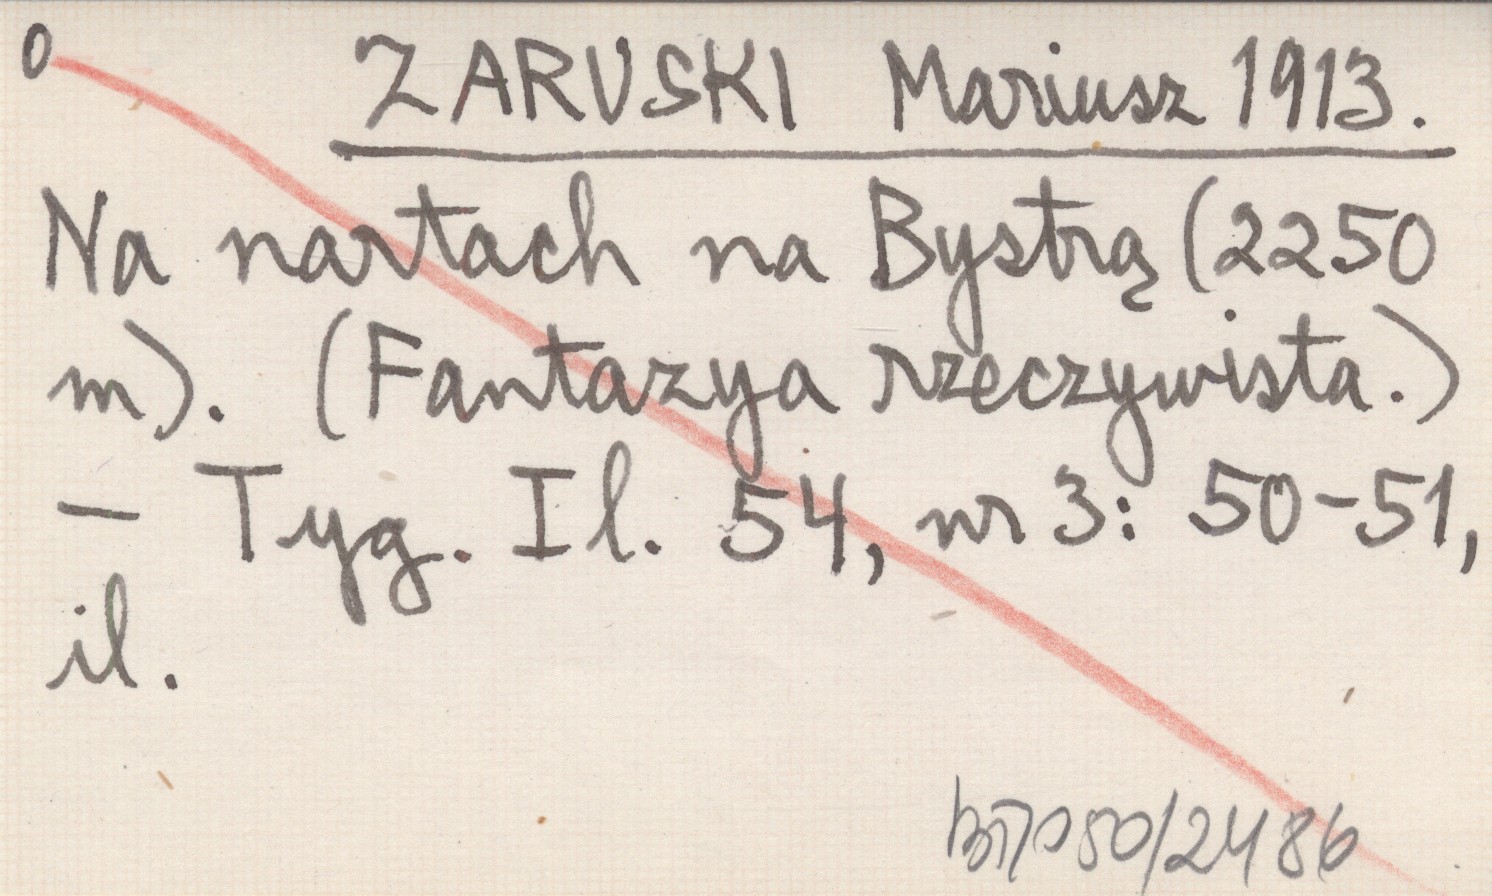 0 ZARUSKI Mariusz 1913.
Na nartach na Bystrą (2250
m). (Fantazya rzeczywista.)
— Tyg. Il. 54, nr 3: 50-51,
il.